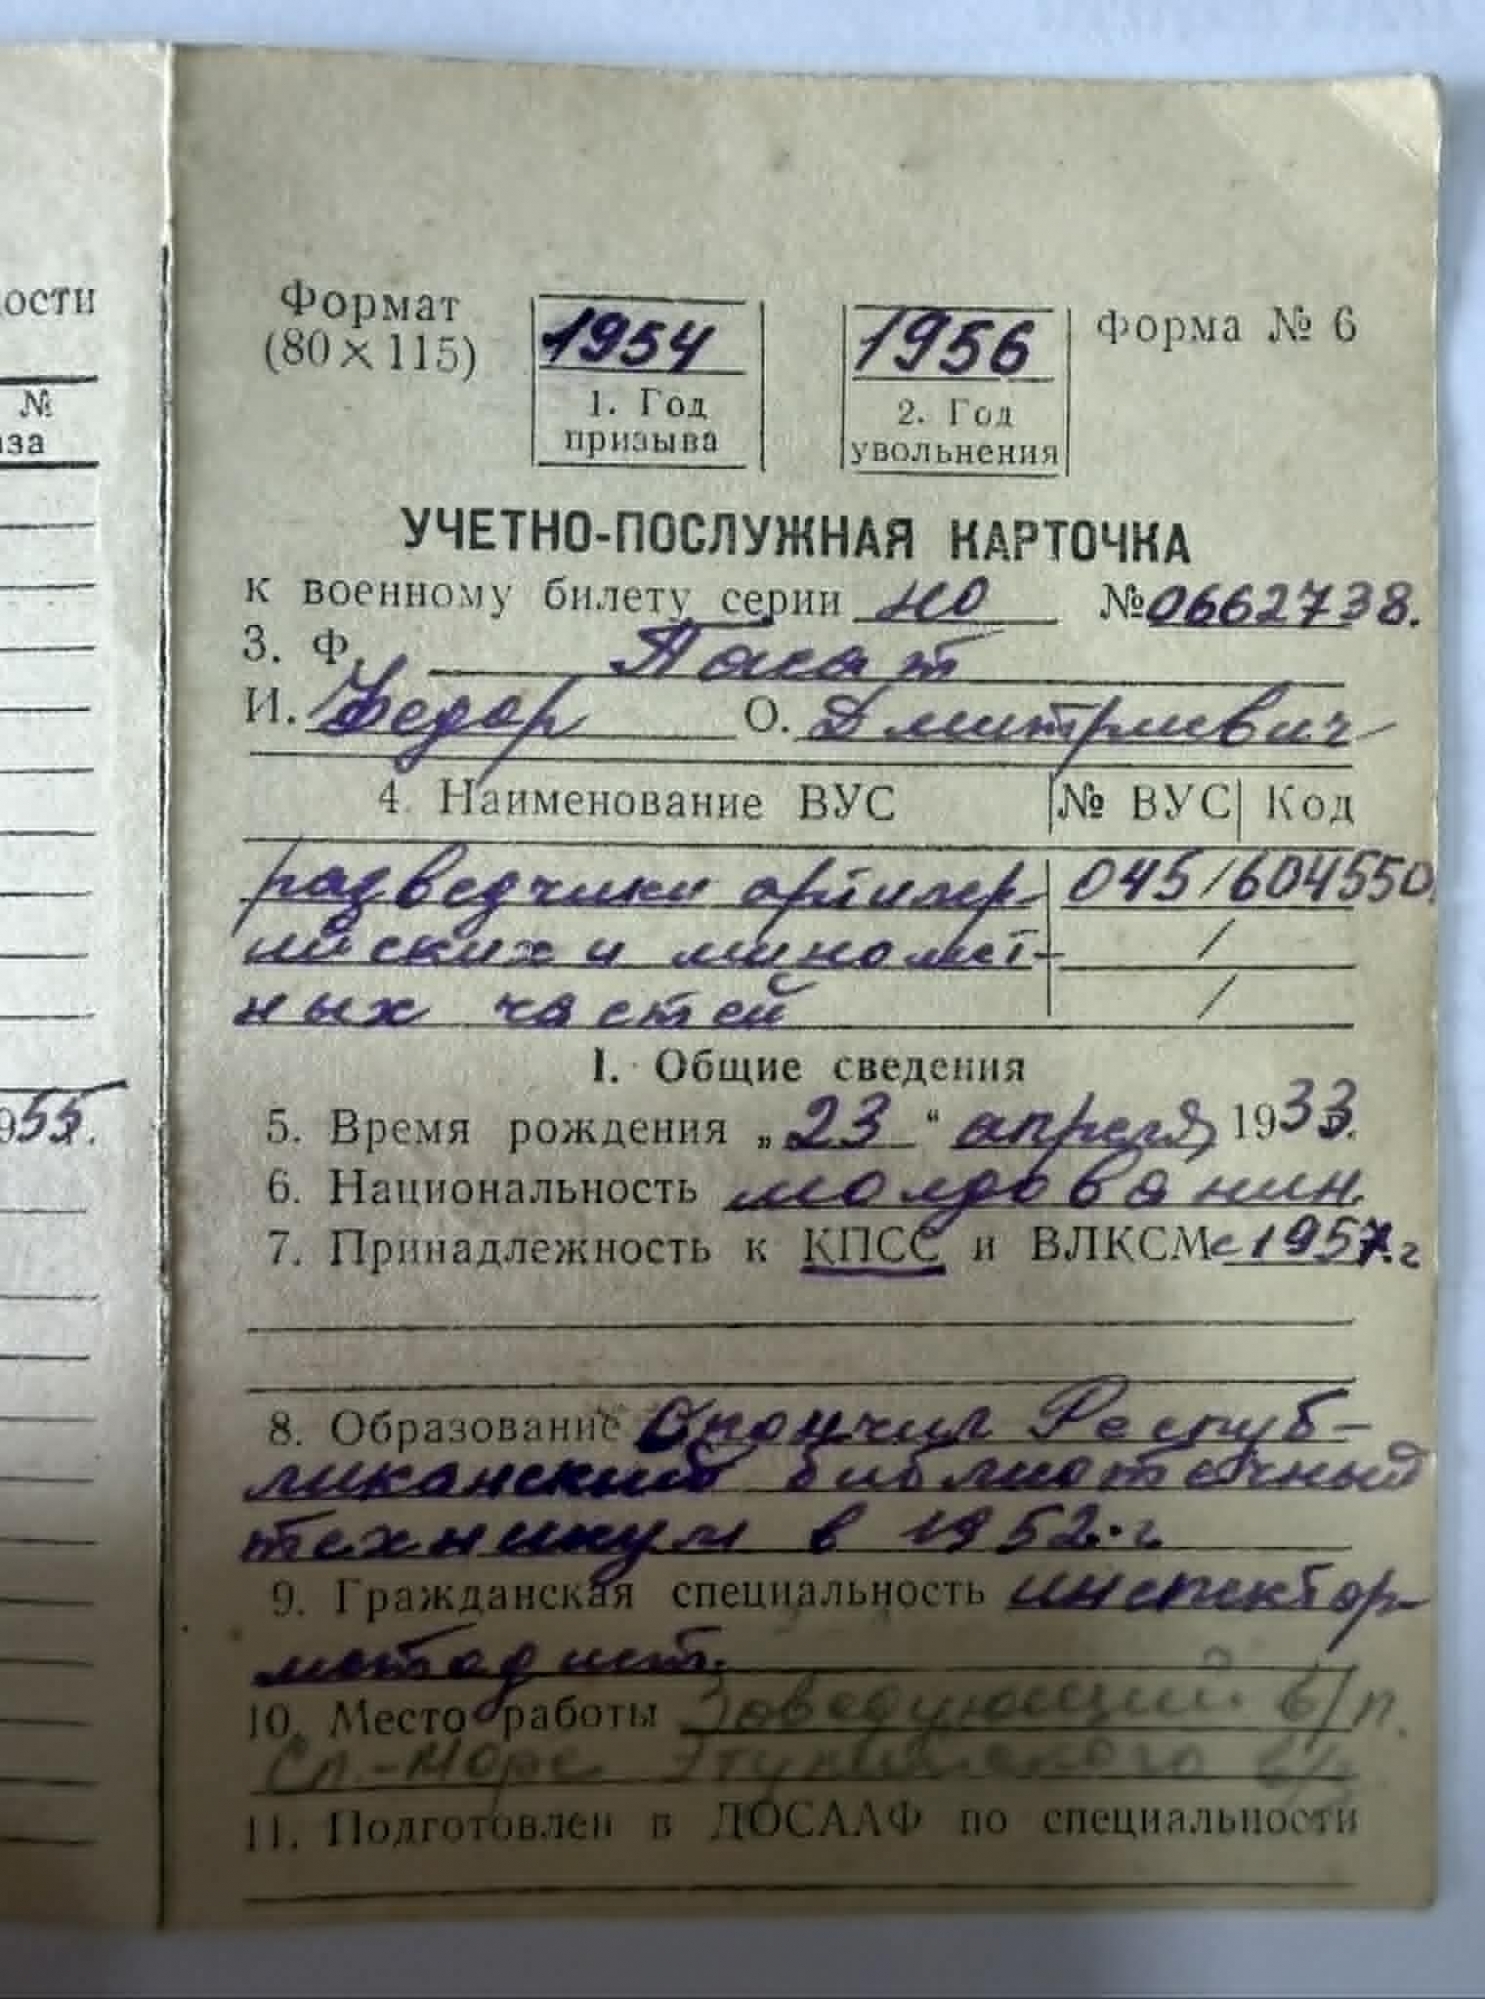 ости
№
аза
955.
Формат
(80×115)
1954
1. Год
призыва
1956
2. Год
увольнения
форма № 6
УЧЕТНО-ПОСЛУЖНАЯ КАРТОЧКА
к военному билету серии НО № 0662738.
3. Ф. Пасат
И. Федор О. Дмитриевич
4. Наименование ВУС № ВУС Код
разведчики артиллер- 045/604550.
ийских и миномет- /
ных частей /
I. Общие сведения
5. Время рождения „23“ апреля 1933.
6. Национальность молдованин.
7. Принадлежность к КПСС и ВЛКСМ с 1957.г
8. Образование Окончил Респуб-
ликанский библиотечный
техникум в 1952.г.
9. Гражданская специальность инспектор-
методист.
10. Место работы Заведующий б/п.
Сл.-Маре
11. Подготовлен в ДОСААФ по специальности